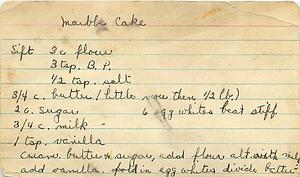 Marble Cake
Sift 3 c flour
3 tsp. B.P.
1/2 tsp. salt
3/4 c. butter (little more then 1/2 lb.)
2 c. sugar 6 egg whites beat stiff
3/4 c. milk
1 tsp. vanilla
cream butter & sugar, add flour alt. with milk
add vanilla. fold in egg whites divide batter